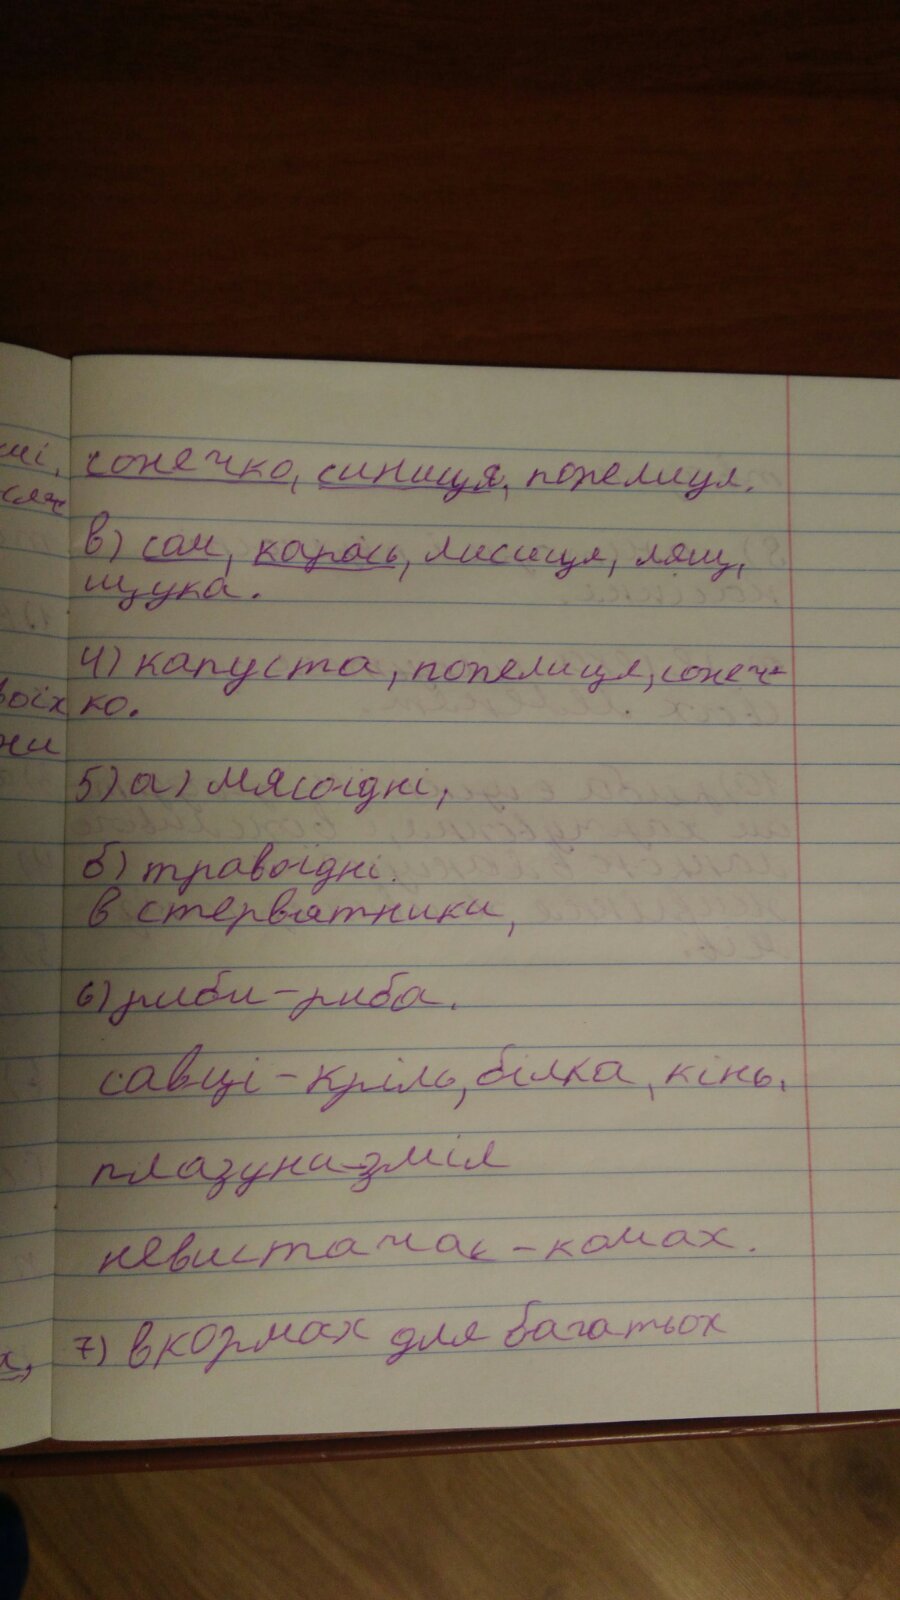 сонечко, синиця, попелиця.
в) сом, карась, лисиця, лящ,
щука.
4) капуста, попелиця, сонеч-
ко.
5) а) мясоїдні,
б) травоїдні.
в стервятники,
6) риби - риба.
савці - кріль, білка, кінь.
плазуни - змія
невистачає - комах.
7) в кормах для багатьох